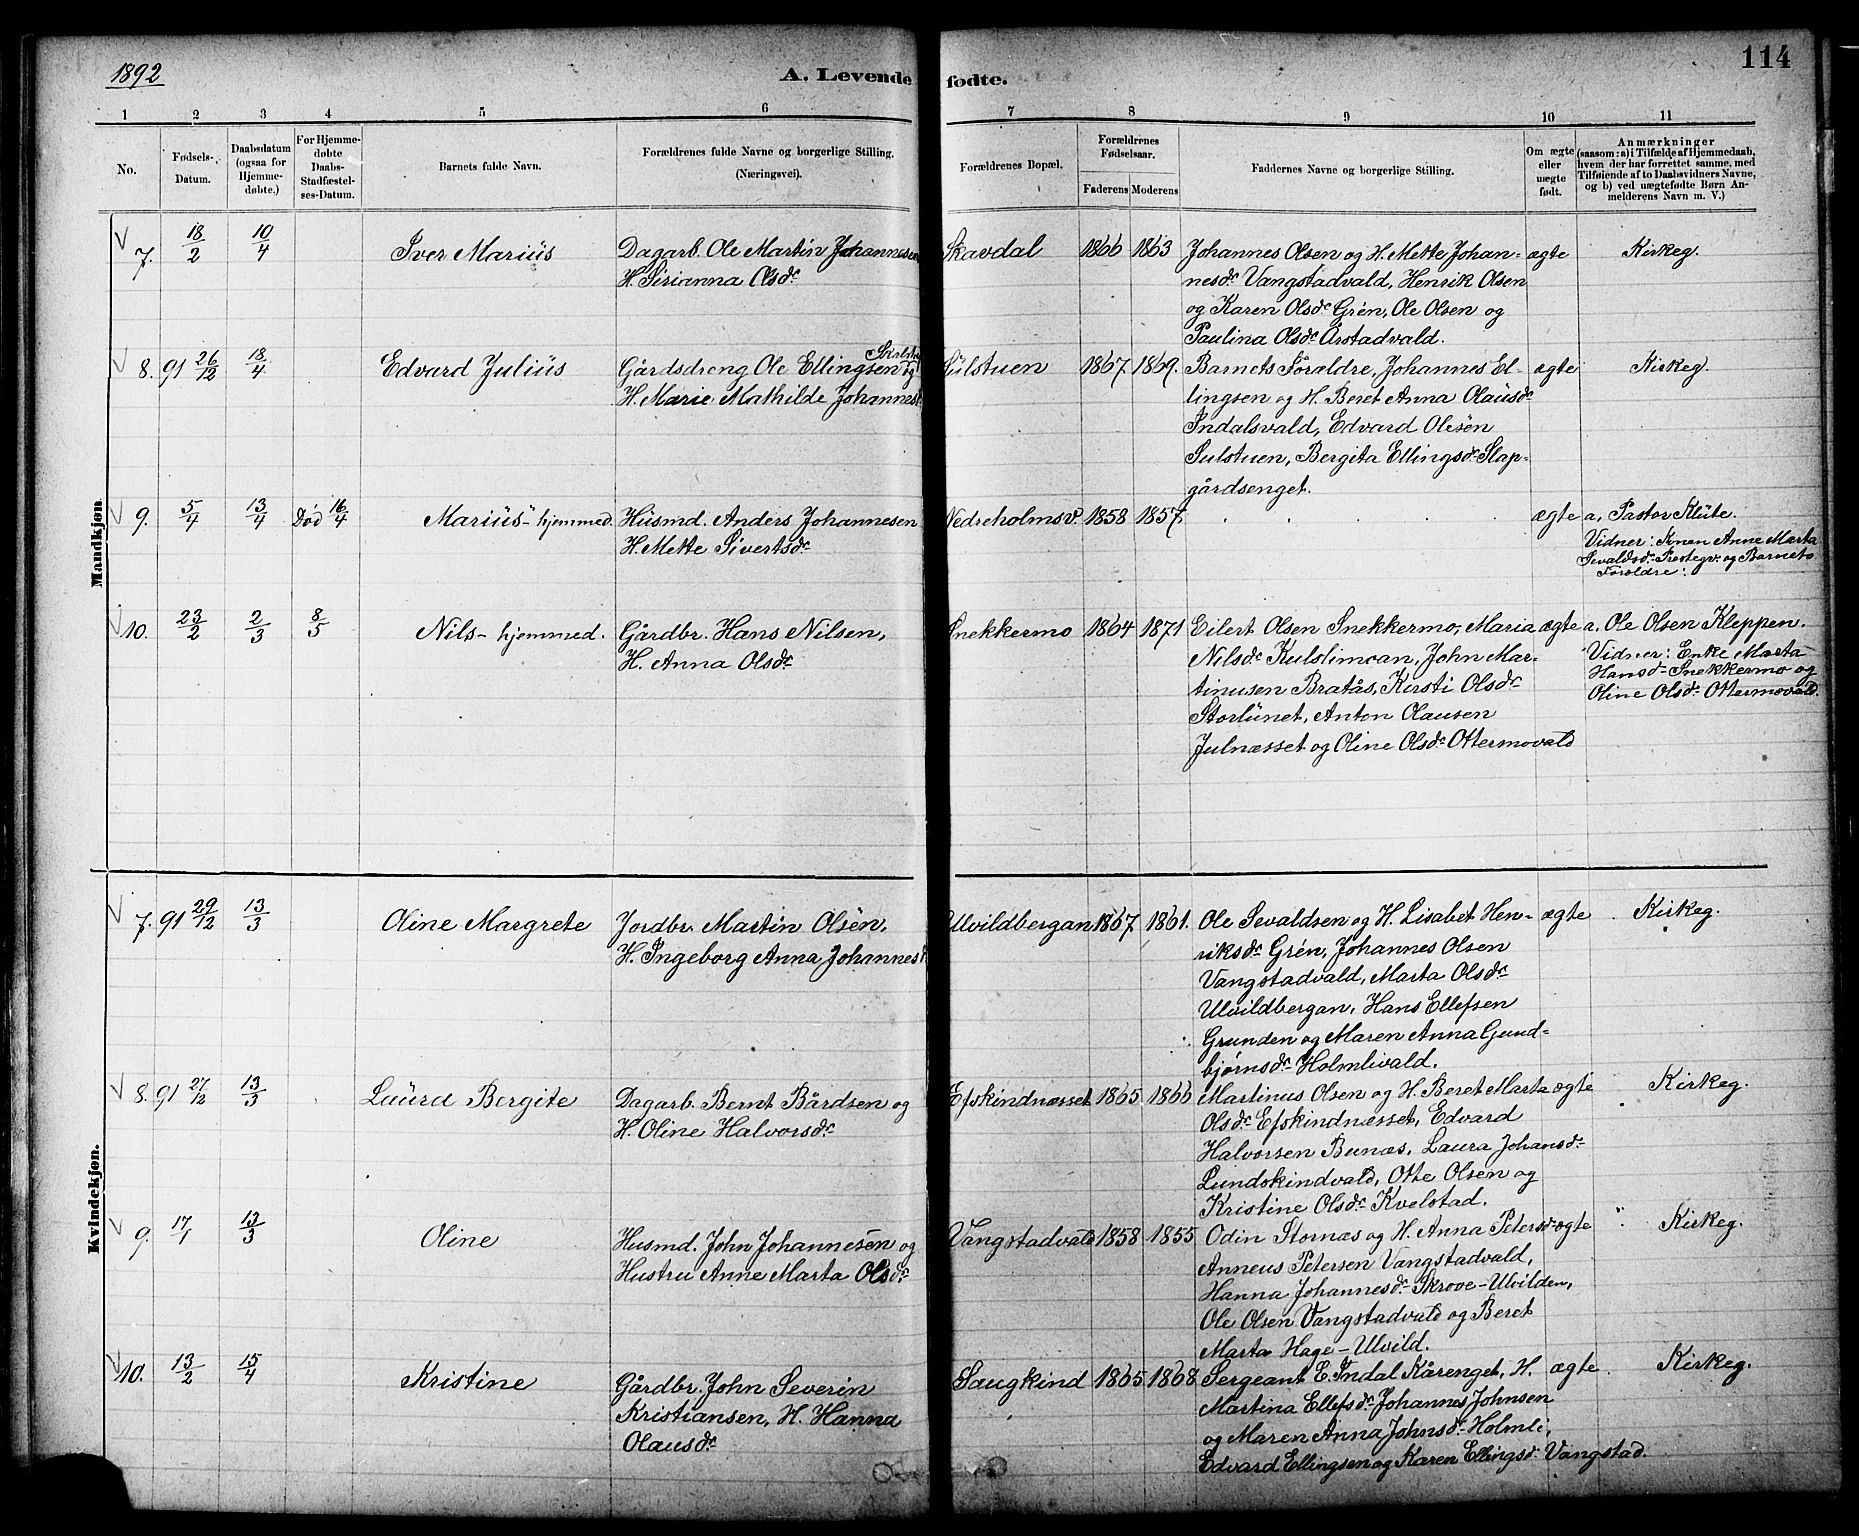 1892
A. Levende fødte.
114
1 2 3 4 5 6 7 8 9 10 11
No.
Fødsels-Datum.
Daabsdatum (ogsaa for Hjemmedøbte.)
For Hjemmedøbte Daabs-Stadfæstelses-Datum.
Barnets fulde Navn.
Forældrenes fulde Navne og borgerlige Stilling.
(Næringsvei).
Forældrenes Bopæl.
Forældrenes Fødselsaar.
Faderens Moderens
Faddernes Navne og borgerlige Stilling.
Om ægte eller uægte født.
Anmærkninger
(saasom: a) i Tilfælde af Hjemmedaab,
hvem der har forrettet samme, med
Tilføiende af to Daabsvidners Navne,
og b) ved uægtefødte Børn An-
melderens Navn m. V.)
Mandkjøn
V 7. 18/2 10/4 Iver Marius
Dagarb. Ole Martin Johannesen
H. Sirianna Olsdr
Skavdal 1866 1863
Johannes Olsen og H. Mette Johan-
nesdr Vangstadvald, Henrik Olsen
og Karen Olsdr Grén, Ole Olsen og
Paulina Olsdr Årstadvald.
ægte Kirkeg.
V 8. 91 26/12 18/4 Edvard Julius
Gårdsdreng Ole Ellingsen og
H. Marie Mathilde Johannesdr
Sulstuen 1867 1869.
Barnets Forældre, Johannes El-
lingsen og H. Beret Anna Olausdr
Indalsvald, Edvard Olesen
Sulstuen, Bergita Ellingsdr Slap-
gårdsenget.
ægte Kirkeg.
V 9. 5/4 13/4 Død 16/4 Marius - hjemmed.
Husmd. Anders Johannesen
H. Mette Sivertsdr
Nedreholmsv. 1858 1857.
ægte a, Pastor Klüte.
Vidner: Konen Anne Marta
Sevaldsdr Prestegv. og Barnets
Forældre.
V 10. 23/2 2/3 8/5 Nils - hjemmed.
Gårdbr. Hans Nilsen,
H. Anna Olsdr
Snekkermo 1864 1871
Eilert Olsen Snekkermo, Maria
Nilsdr Kulslimoan, John Mar-
tinusen Bratås, Kirsti Olsdr
Storlunet, Anton Olausen
Julnæsset og Oline Olsdr Ottermovald
ægte a, Ole Olsen Kleppen.
Vidner: Enke Marta
Hansdr Snekkermo og
Oline Olsdr Ottermovald.
Kvindekjøn.
V 7. 91 29/12 13/3 Oline Margrete
Jordbr. Martin Olsen,
H. Ingeborg Anna Johannesdr
Ulvildbergan 1867 1861.
Ole Sevaldsen og H. Lisabet Hen-
riksdr Grén, Johannes Olsen
Vangstadvald, Marta Olsdr
Ulvildbergan, Hans Ellefsen
Grunden og Maren Anna Gund-
bjørnsdr Holmlivald.
ægte Kirkeg.
V 8. 91 27/12 13/3 Laura Bergite
Dagarb. Bernt Bårdsen og
H. Oline Halvorsdr
Efskindnæsset 1865 1866
Martinus Olsen og H. Beret Marta
Olsdr Efskindnæsset, Edvard
Halvorsen Bunæs, Laura Johansdr
Lundskindvald, Otte Olsen og
Kristine Olsdr Kvelstad.
ægte Kirkeg.
V 9. 17/1 13/3 Oline
Husmd. John Johannesen og
Hustru Anne Marta Olsdr
Vangstadvald 1858 1855
Odin Stornæs og H. Anna Petersdr
Anneus Petersen Vangstadvald,
Hanna Johannesdr Skrove-Ulvilden,
Ole Olsen Vangstadvald og Beret
Marta Hage-Ulvild.
ægte Kirkeg.
V 10. 13/2 15/4 Kristine
Gårdbr. John Severin
Kristiansen, H. Hanna
Olausdr
Saugkind 1865 1868
Sergeant E. Indal Kårenget, H.
Martina Ellefsdr Johannes Johnsen
og Maren Anna Johnsdr Holmli,
Edvard Ellingsen og Karen Ellingsdr Vangstad.
ægte Kirkeg.